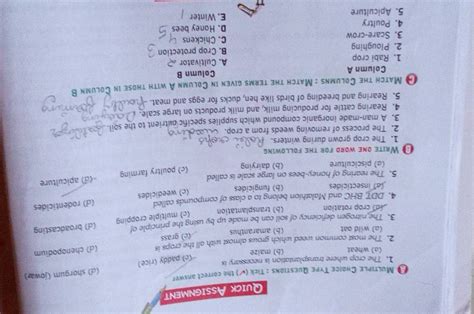 QUICK ASSIGNMENT
A MULTIPLE CHOICE TYPE QUESTIONS : Tick (✓) the correct answer
1. The crop where transplantation is necessary is
(a) wheat (b) maize (c) paddy (rice) (d) shorgum (Jowar)
2. The more common weed which grows almost with all the crop is
(a) wild oat (b) amaranthus (c) grass (d) chenopodium
3. The nitrogen deficiency of soil can be made up by using the principle of
(a) crop rotation (b) transplantation (c) multiple cropping (d) broadcasting
4. DDT, BHC and Malathion belong to a class of compounds called
(a) insecticides (b) fungicides (c) weedicides (d) rodenticides
5. The rearing of honey-bees on large scale is called
(a) pisciculture (b) dairying (c) poultry farming (d) apiculture
B WRITE ONE WORD FOR THE FOLLOWING
1. The crop grown during winters. Rabi crops
2. The process of removing weeds from a crop. weeding
3. A man-made inorganic compound which supplies specific nutrient to the soil.
4. Rearing cattle for producing milk, and milk products on large scale.
5. Rearing and breeding of birds like hen, ducks for eggs and meat.
C MATCH THE COLUMNS : MATCH THE TERMS GIVEN IN COLUMN A WITH THOSE IN COLUMN B
Column A Column B
1. Rabi crop A. Cultivator 2
2. Ploughing B. Crop protection 3
3. Scare-crow C. Chickens 4
4. Poultry D. Honey bees 5
5. Apiculture E. Winter 1